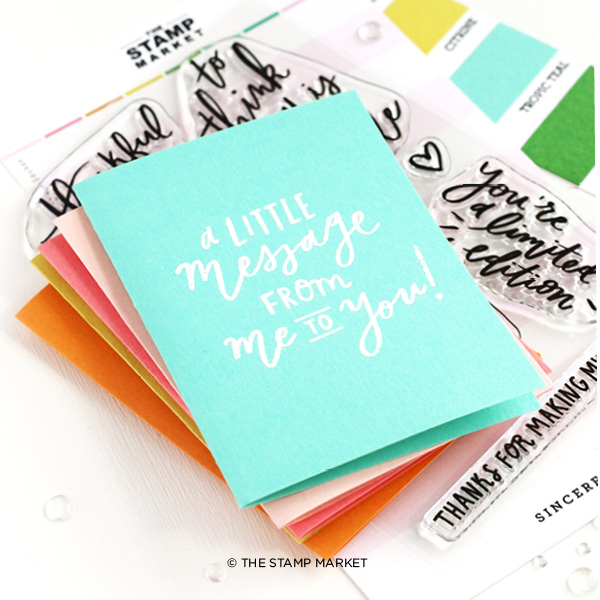 THE
STAMP
MARKET
CITRINE
TROPIC TEAL
to
think
is
you're
a limited
edition
a LITTLE
message
FROM
me TO you!
THANKS FOR MAKING
SINCERE
© THE STAMP MARKET